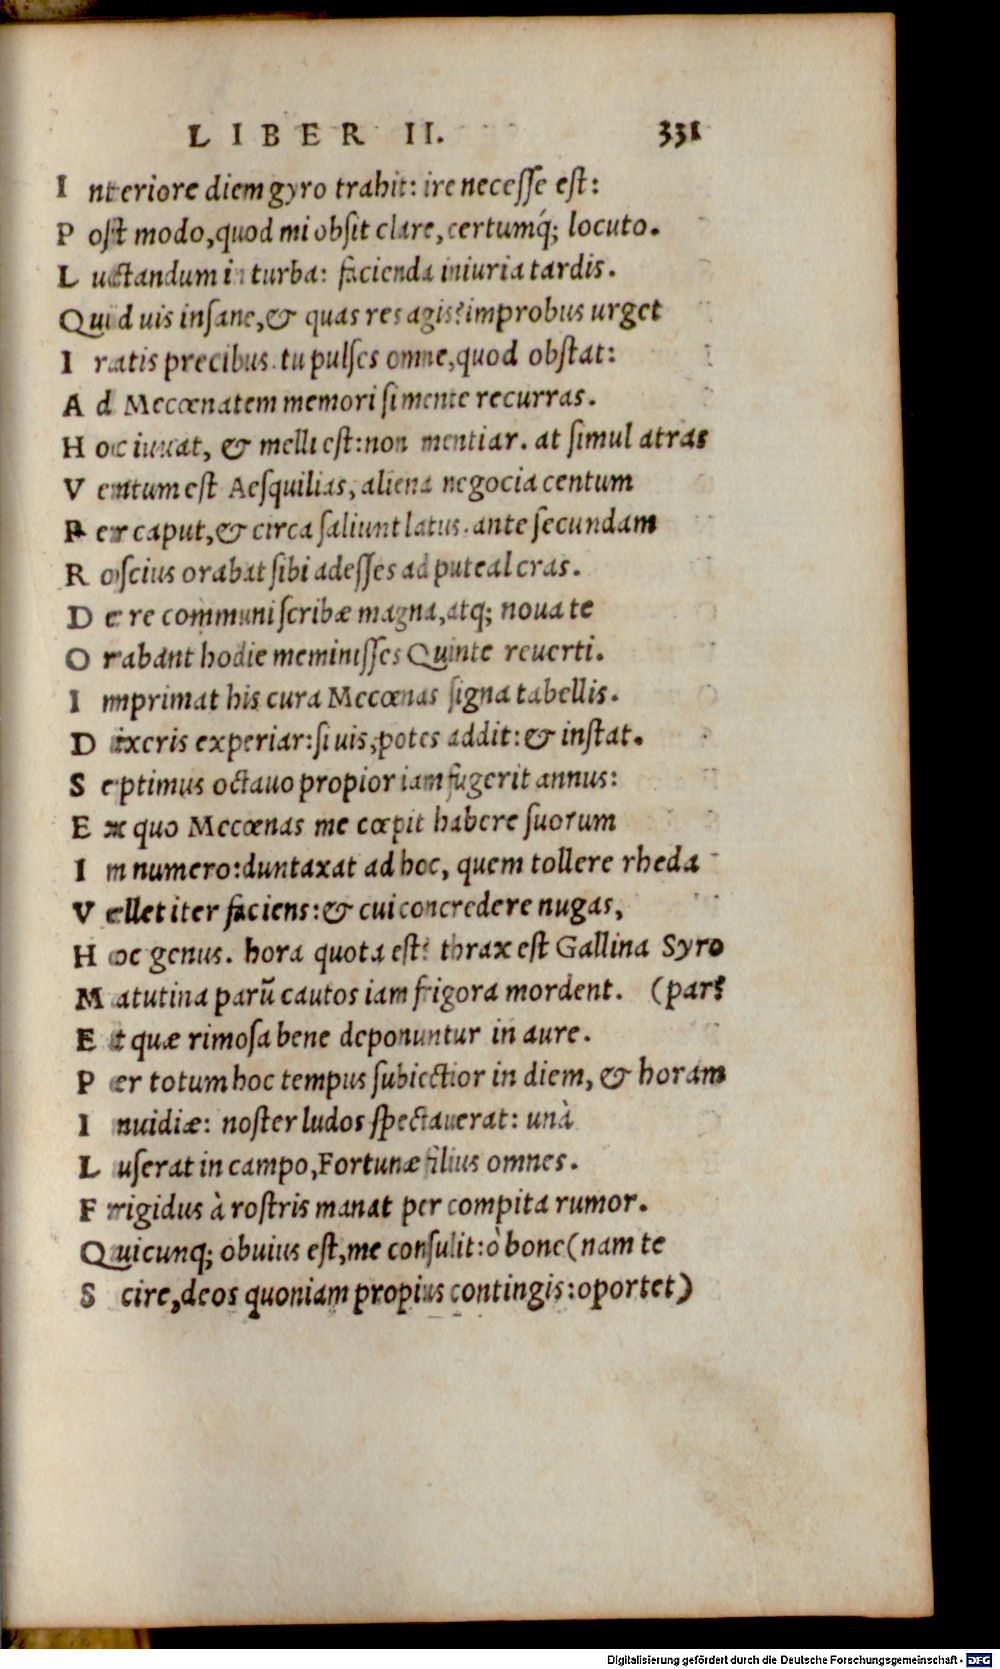 LIBER II. 331
I nteriore diem gyro trahit: ire necesse est:
P ost modo, quod mi obsit clare, certumq́; locuto.
L uctandum in turba: facienda iniuria tardis.
Quid uis insane, & quas res agis? improbus urget
I ratis precibus. tu pulses omne, quod obstat:
A d Mecœnatem memori si mente recurras.
H oc iuuat, & melli est: non mentiar. at simul atras
V entum est Aesquilias, aliena negocia centum
P er caput, & circa saliunt latus. ante secundam
R oscius orabat sibi adesses ad puteal cras.
D e re communi scribæ magna, atq; noua te
O rabant hodie meminisses Quinte reuerti.
I mprimat his cura Mecœnas signa tabellis.
D ixeris experiar: si uis, potes addit: & instat.
S eptimus octauo propior iam fugerit annus:
E x quo Mecœnas me cœpit habere suorum
I n numero: duntaxat ad hoc, quem tollere rheda
V ellet iter faciens: & cui concredere nugas,
H oc genus. hora quota est? thrax est Gallina Syro
M atutina parũ cautos iam frigora mordent. (par?
E t quæ rimosa bene deponuntur in aure.
P er totum hoc tempus subiectior in diem, & horam
I nuidiæ: noster ludos spectauerat: unà
L userat in campo, Fortunæ filius omnes.
F rigidus à rostris manat per compita rumor.
Quicunq; obuius est, me consulit: ò bone (nam te
S cire, deos quoniam propius contingis: oportet)
Digitalisierung gefördert durch die Deutsche Forschungsgemeinschaft - DFG